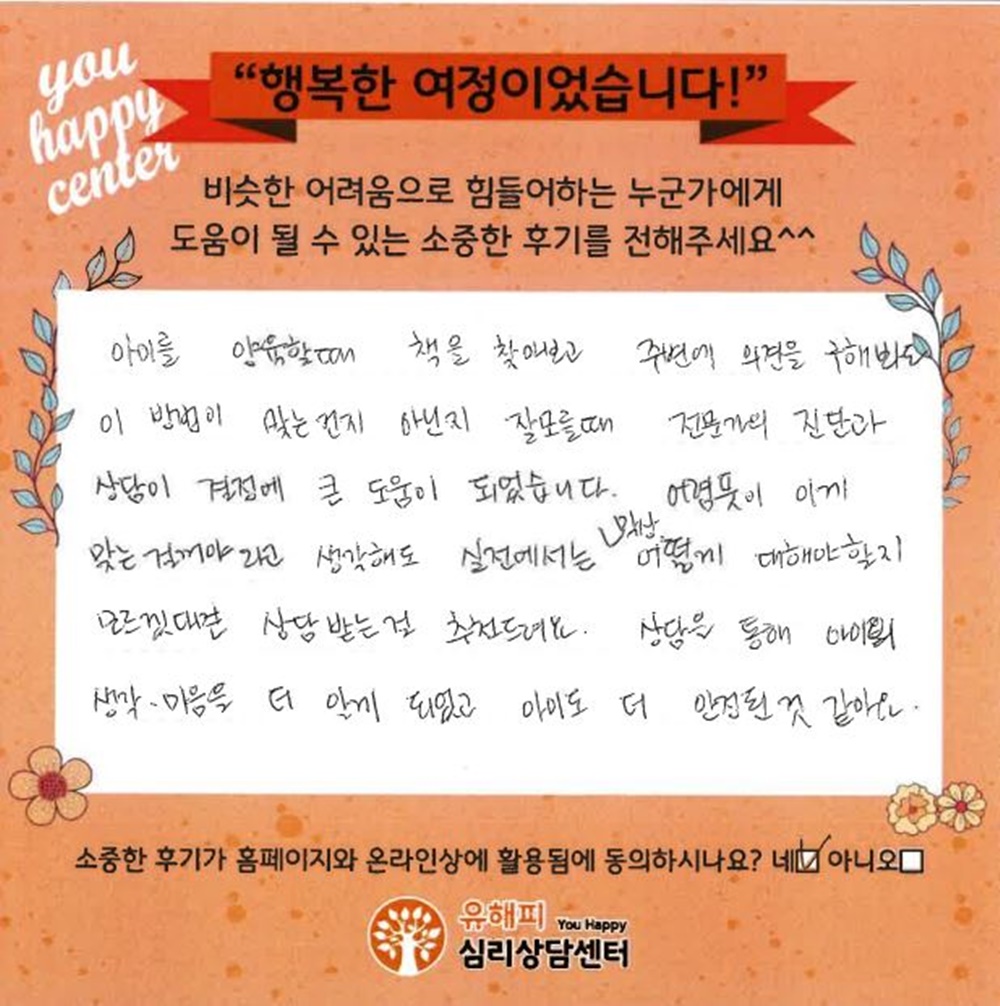 you
happy
center
“행복한 여정이었습니다!”
비슷한 어려움으로 힘들어하는 누군가에게
도움이 될 수 있는 소중한 후기를 전해주세요^^
아이를 양육할때 책을 찾아보고 주변에 의견을 구해봐도
이 방법이 맞는건지 아닌지 잘모를때 전문가의 진단과
상담이 결정에 큰 도움이 되었습니다. 어렴풋이 이게
맞는걸꺼야 라고 생각해도 실전에서는 막상 어떻게 대해야할지
모르겠다면 상담받는걸 추천드려요. 상담을 통해 아이의
생각·마음을 더 알게 되었고 아이도 더 안정된것 같아요.
소중한 후기가 홈페이지와 온라인상에 활용됨에 동의하시나요? 네☑ 아니오☐
유해피 You Happy
심리상담센터